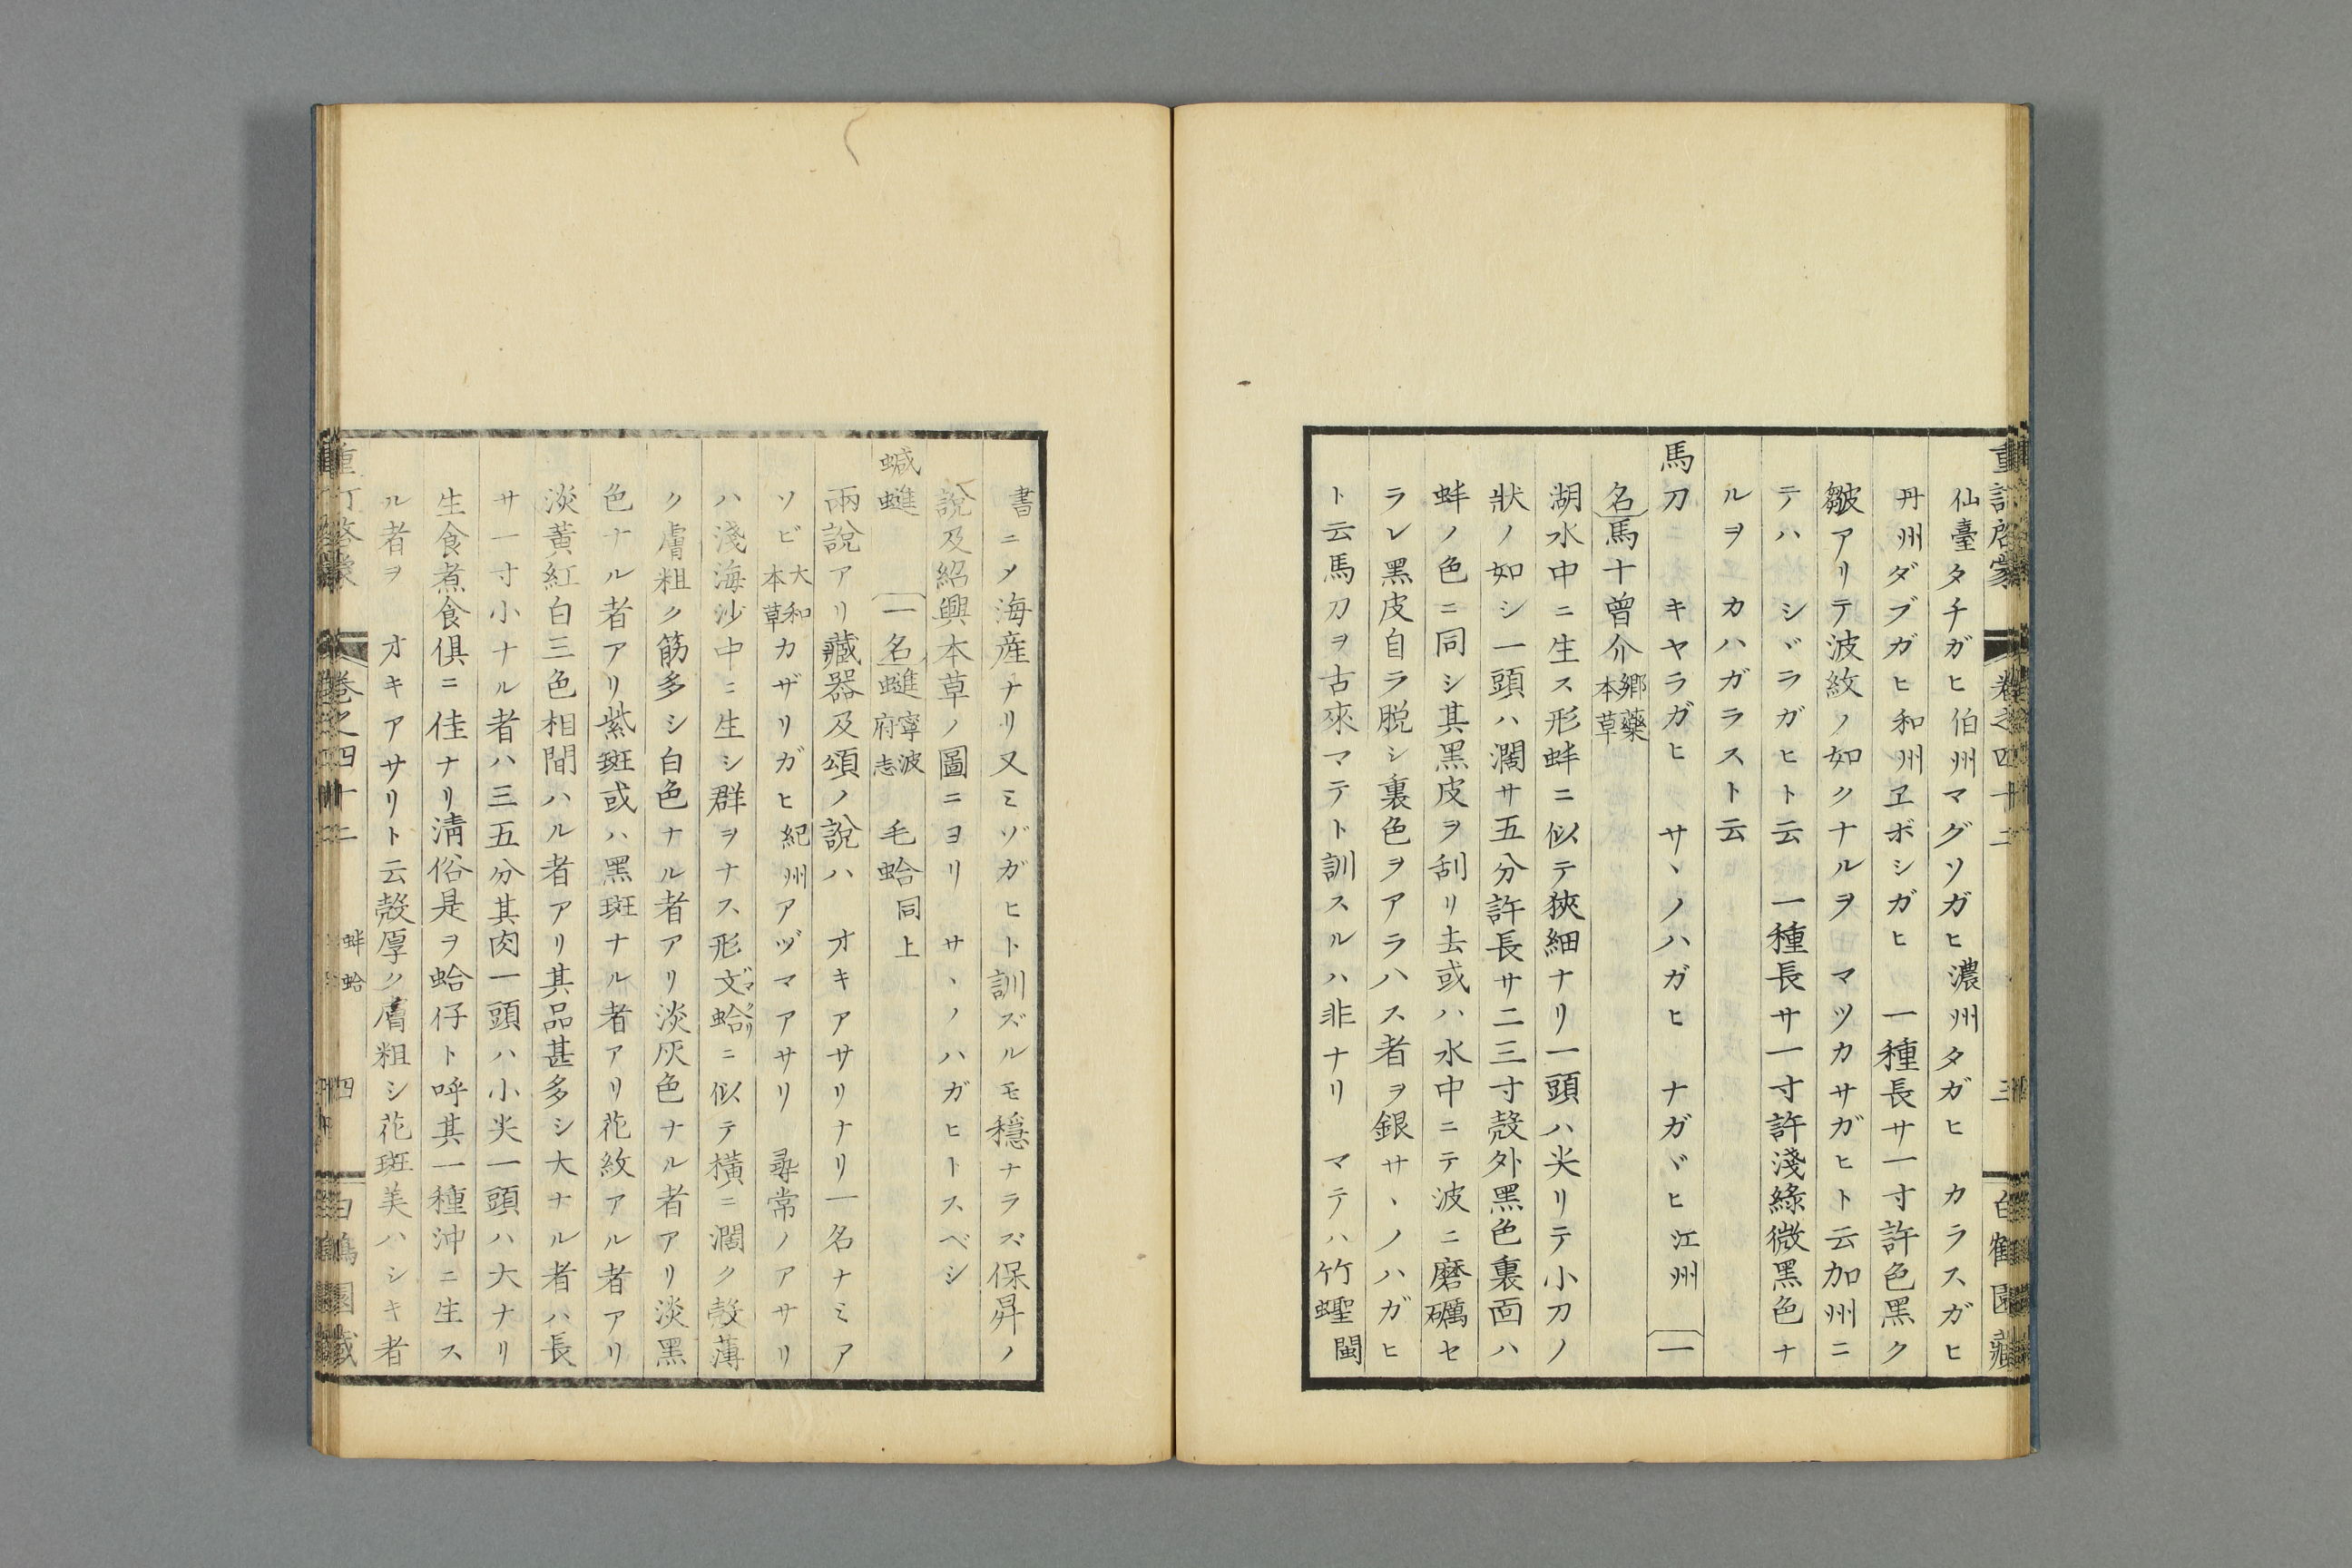 重訂啓蒙 卷之四十二 三 白鶴園藏
仙臺タチガヒ伯州マグソガヒ濃州タガヒ カラスガヒ
丹州ダブガヒ和州ヱボシガヒ 一種長サ一寸許色黒ク
皺アリテ波紋ノ如クナルヲ マツカサガヒト云加州ニ
テハ シヾラガヒト云 一種長サ一寸許淺綠微黒色ナ
ルヲ カハガラスト云
馬刀 キヤラガヒ サヽノハガヒ ナガヾヒ江州 一
名馬十曾介鄉藥本草
湖水中ニ生ス形蚌ニ似テ狹細ナリ一頭ハ尖リテ小刀ノ
狀ノ如シ一頭ハ濶サ五分許長サ二三寸殼外黒色裏面ハ
蚌ノ色ニ同シ其黒皮ヲ刮リ去或ハ水中ニテ波ニ磨礪セ
ラレ黑皮自ラ脱シ裏色ヲアラハス者ヲ銀サヽノハガヒ
ト云馬刀ヲ古來マテト訓スルハ非ナリ マテハ竹蟶閩
書ニメ海産ナリ又ミゾガヒト訓ズルモ穩ナラズ保昇ノ
說及紹興本草ノ圖ニヨリ サヽノハガヒトスベシ
蝛䗯 一名䗯寧波府志 毛蛤同上
兩說アリ藏器及頌ノ說ハ オキアサリナリ一名ナミア
ソビ大和本草カザリガヒ紀州アヅマアサリ 尋常ノアサリ
ハ淺海沙中ニ生シ群ヲナス形文蛤ニ似テ橫ニ濶ク殼薄
ク膚粗ク筋多シ白色ナル者アリ淡灰色ナル者アリ淡黑
色ナル者アリ紫斑或ハ黑斑ナル者アリ花紋アル者アリ
淡黃紅白三色相間ハル者アリ其品甚多シ大ナル者ハ長
サ一寸小ナル者ハ三五分其肉一頭ハ小尖一頭ハ大ナリ
生食煮食俱ニ佳ナリ淸俗是ヲ蛤仔ト呼其一種沖ニ生ス
ル者ヲ オキアサリト云殼厚ク膚粗シ花斑美ハシキ者
卷之四十二 蚌蛤 四